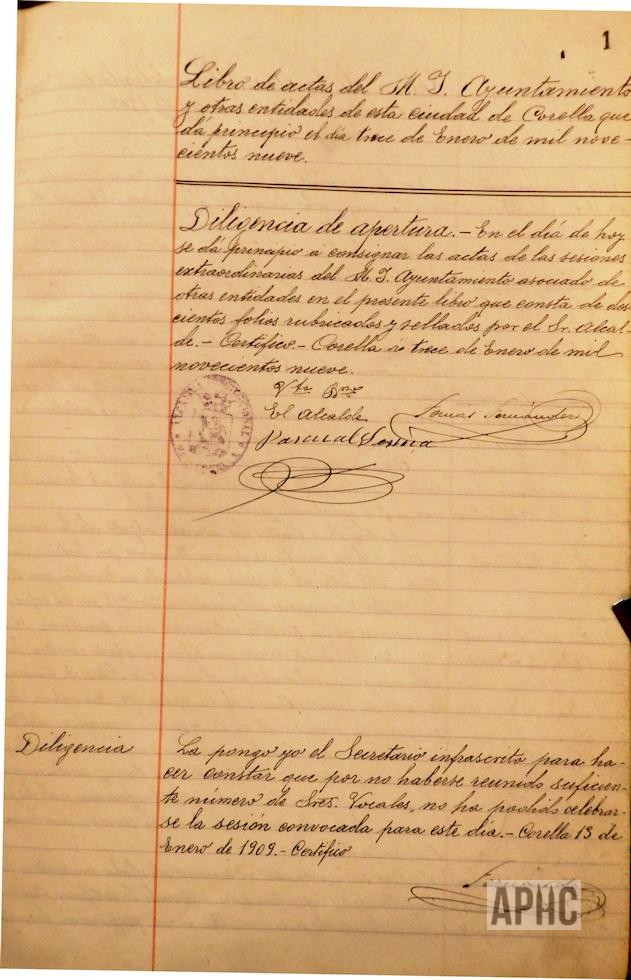 1
Libro de actas del M. I. Ayuntamiento
y otras entidades de esta ciudad de Corella que
dá principio el dia trece de Enero de mil nove-
cientos nueve.
Diligencia de apertura.- En el día de hoy
se dá principio á consignar las actas de las sesiones
extraordinarias del M. I. Ayuntamiento asociado de
otras entidades en el presente libro que consta de dos-
cientos folios rubricados y sellados por el Sr. Alcal-
de.- Certifico.- Corella á trece de Enero de mil
novecientos nueve.
Vto Bno
El Alcalde
Pascual
Tomás Fernández
Diligencia
La pongo yo el Secretario infrascrito para ha-
cer constar que por no haberse reunido suficien-
te número de Sres. Vocales, no ha podido celebrar-
se la sesión convocada para este día.- Corella 13 de
Enero de 1909.- Certifico
APHC